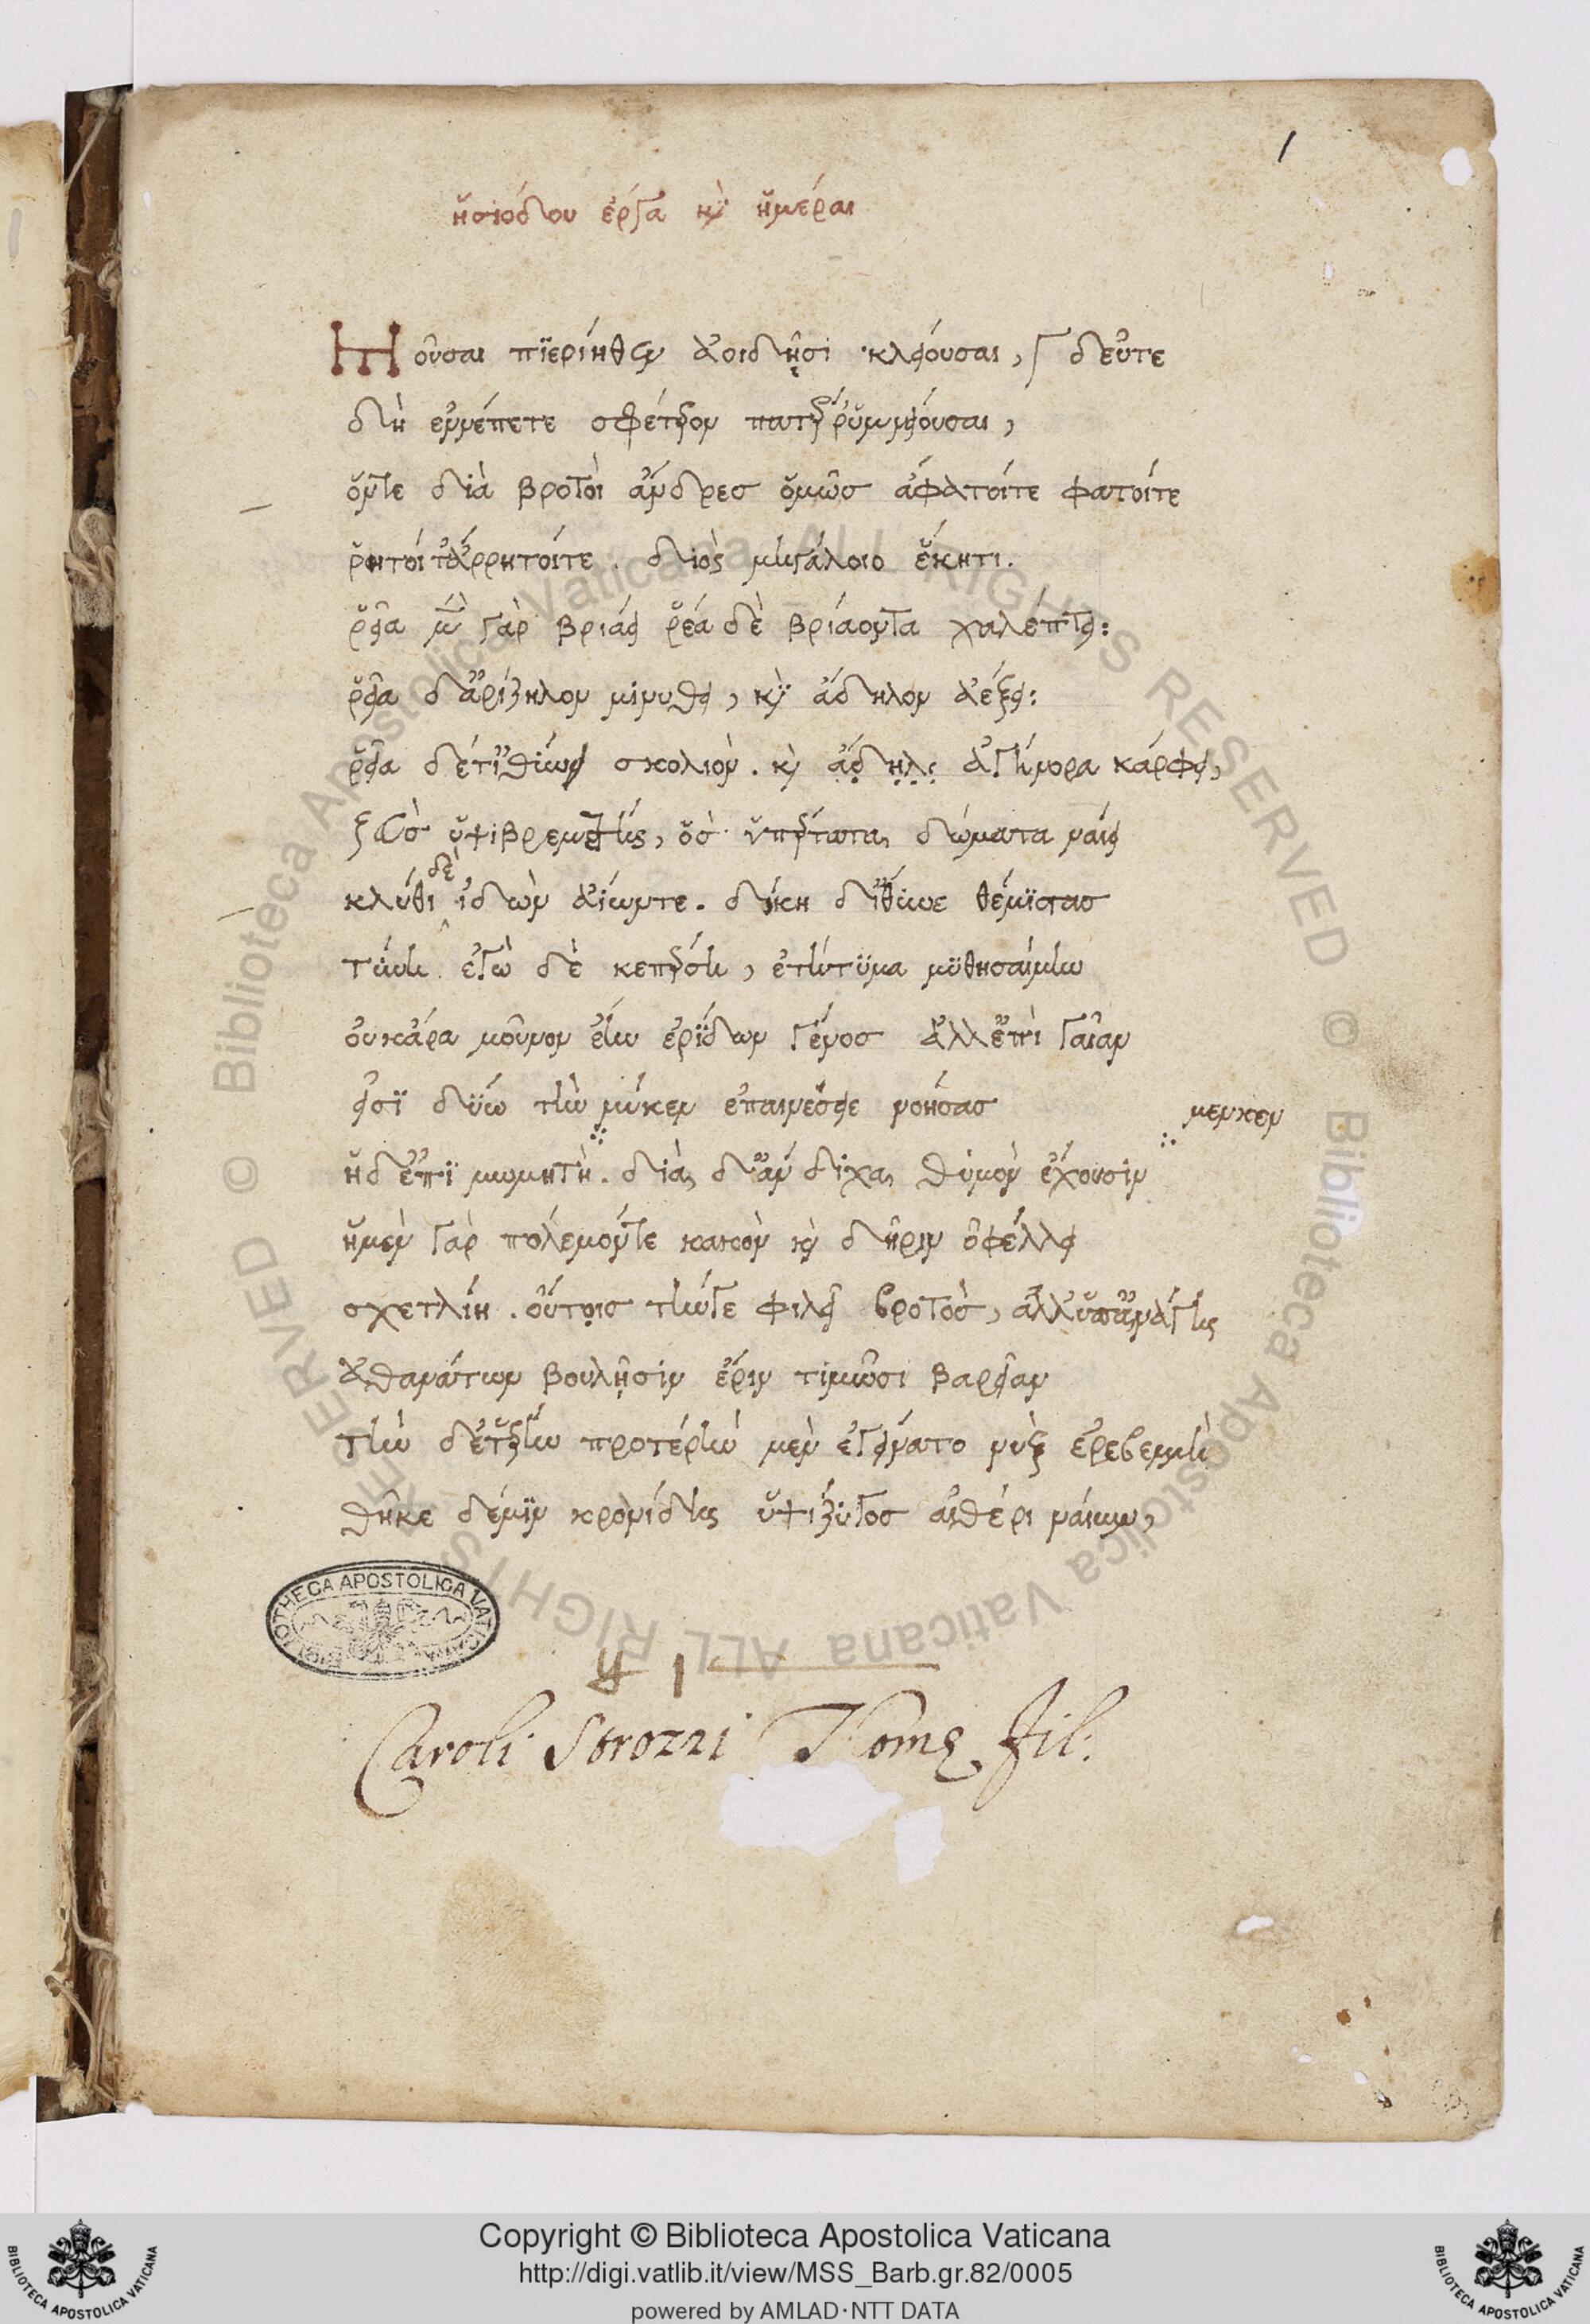 1
ἡσιόδου ἔργα κὶ ἡμέραι
Μοῦσαι πϊερίηθεν ἀοιδῇσι κλείουσαι, δεῦτε
δὴ ἐννέπετε σφέτερον πατέρ ὑμνείουσαι,
ὅντε διὰ βροτοὶ ἄνδρες ὁμῶς ἄφατοίτε φατοίτε
ῥητοί τἄρρητοίτε. διὸς μεγάλοιο ἕκητι.
ῥεῖα μὲν γὰρ βριάει ῥέα δὲ βριάοντα χαλέπτει:
ῥεῖα δἀρίζηλον μινύθει, κὶ ἄδηλον ἀέξει:
ῥεῖα δέτ ἰθύνει σκολιὸν. κὶ ἄδηλ ἀγήνορα κάρφει,
ζεὺς ὑψιβρεμέτης, ὃς ὑπέρτατα δώματα ναίει
κλύθι δὲ ἰδὼν ἀΐωντε. δίκη δἴθυνε θέμϊστας
τύνη ἐγὼ δὲ κεπέρση, ἐτήτϋμα μϋθησαίμην
οὐκάρα μοῦνον ἔην ἐρίδων γένος ἀλλἐπὶ γαῖαν
εἰσῒ δύω τὴν μέν κεν ἐπαινέσειε νοήσας
μεν κεν
ἡ δἐπῒ μωμητὴ. διὰ δἄνδιχα θϋμὸν ἔχουσιν
ἡ μὲν γὰρ πόλεμόντε κακὸν κὶ δῆριν ὀφέλλει
σχετλίη. οὔτοις τήνγε φιλεῖ βροτὸς, ἀλλ ὑπ ἀνάγκης
ἀθανάτων βουλῇσιν ἔριν τιμῶσι βαρεῖαν
τὴν δἑτέρην προτέρην μὲν ἐγείνατο νὺξ ἐρεβεννὴ
θῆκε δέμϊν κρονίδης ὑψίζϋγος αἰθέρι ναίων,
BIBLIOTHECA APOSTOLICA VATICANA
Caroli Strozzi Thomę fil:
© Biblioteca Apostolica Vaticana ALL RIGHTS RESERVED © Biblioteca Apostolica Vaticana ALL RIGHTS RESERVED
Copyright © Biblioteca Apostolica Vaticana
http://digi.vatlib.it/view/MSS_Barb.gr.82/0005
powered by AMLAD·NTT DATA
BIBLIOTECA APOSTOLICA VATICANA
BIBLIOTECA APOSTOLICA VATICANA